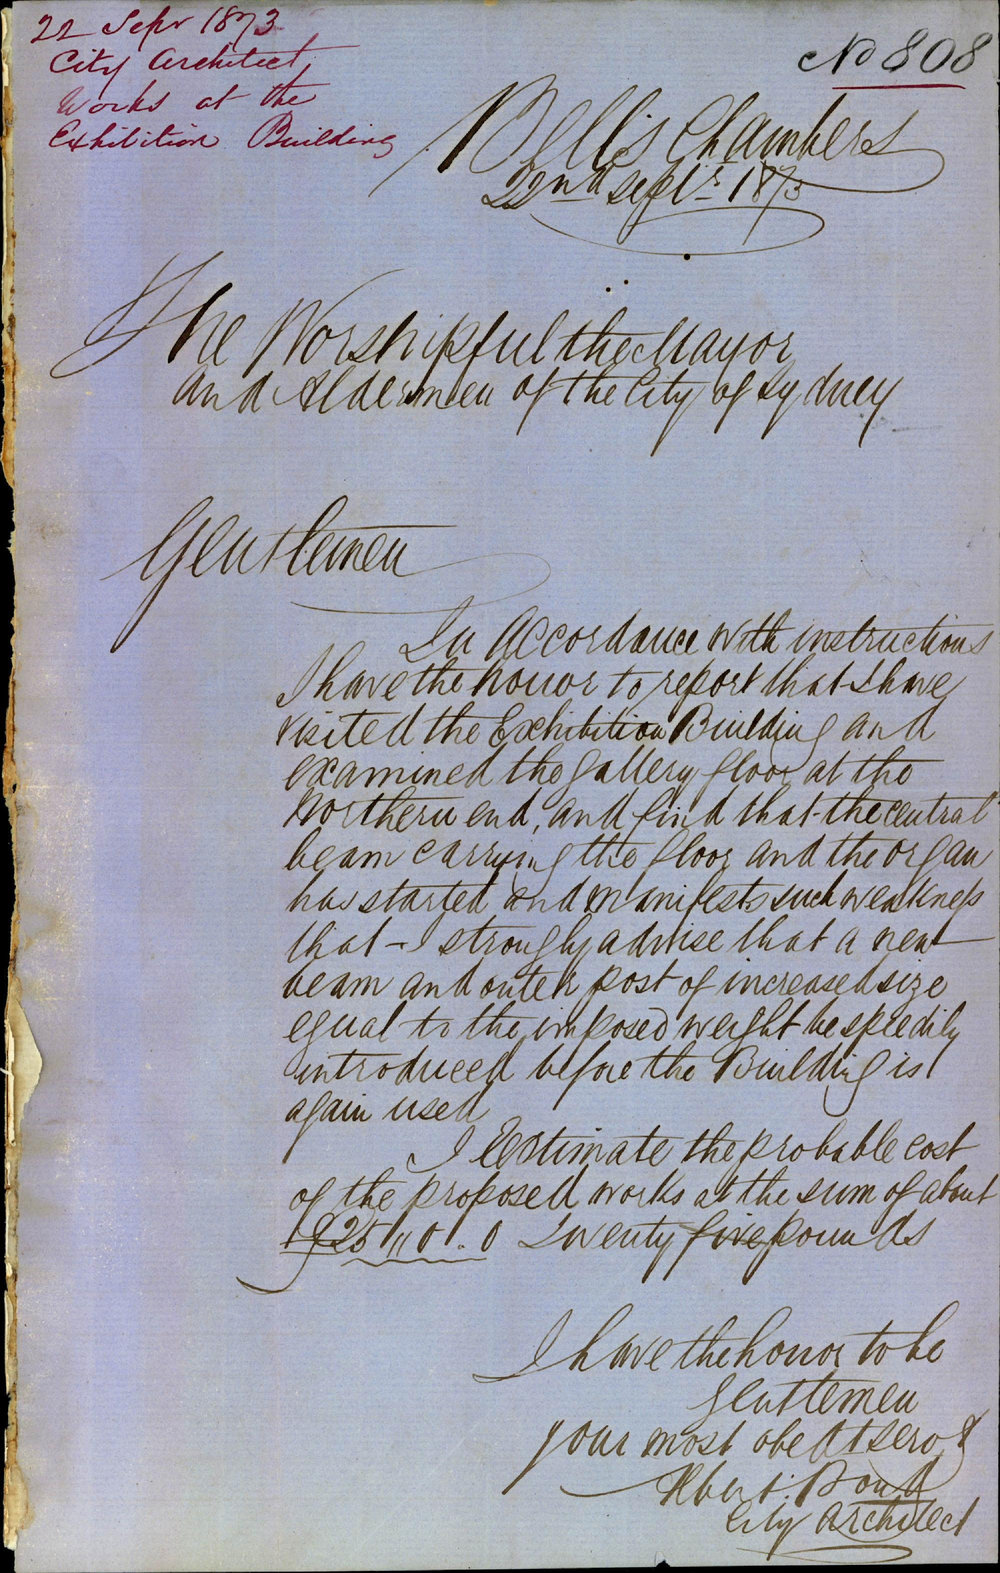 22 Sepr 1873
City Architect,
Works at the
Exhibition Building
No 808
Bell's Chambers
22nd Septr 1873
The Worshipful the Mayor
and Aldermen of the City of Sydney
Gentlemen
In Accordance with instructions
I have the honor to report that I have
visited the Exhibition Building and
examined the gallery floor at the
Northern end, and find that the central
beam carrying the floor and the organ
has started and manifests such weakness
that I strongly advise that a new
beam and outer post of increased size
equal to the imposed weight be speedily
introduced before the Building is
again used
I Estimate the probable cost
of the proposed works at the sum of about
£25 ,, 0 . 0 Twenty five pounds
I have the honor to be
Gentlemen
your most obedt servt
Albert Bond
City Architect